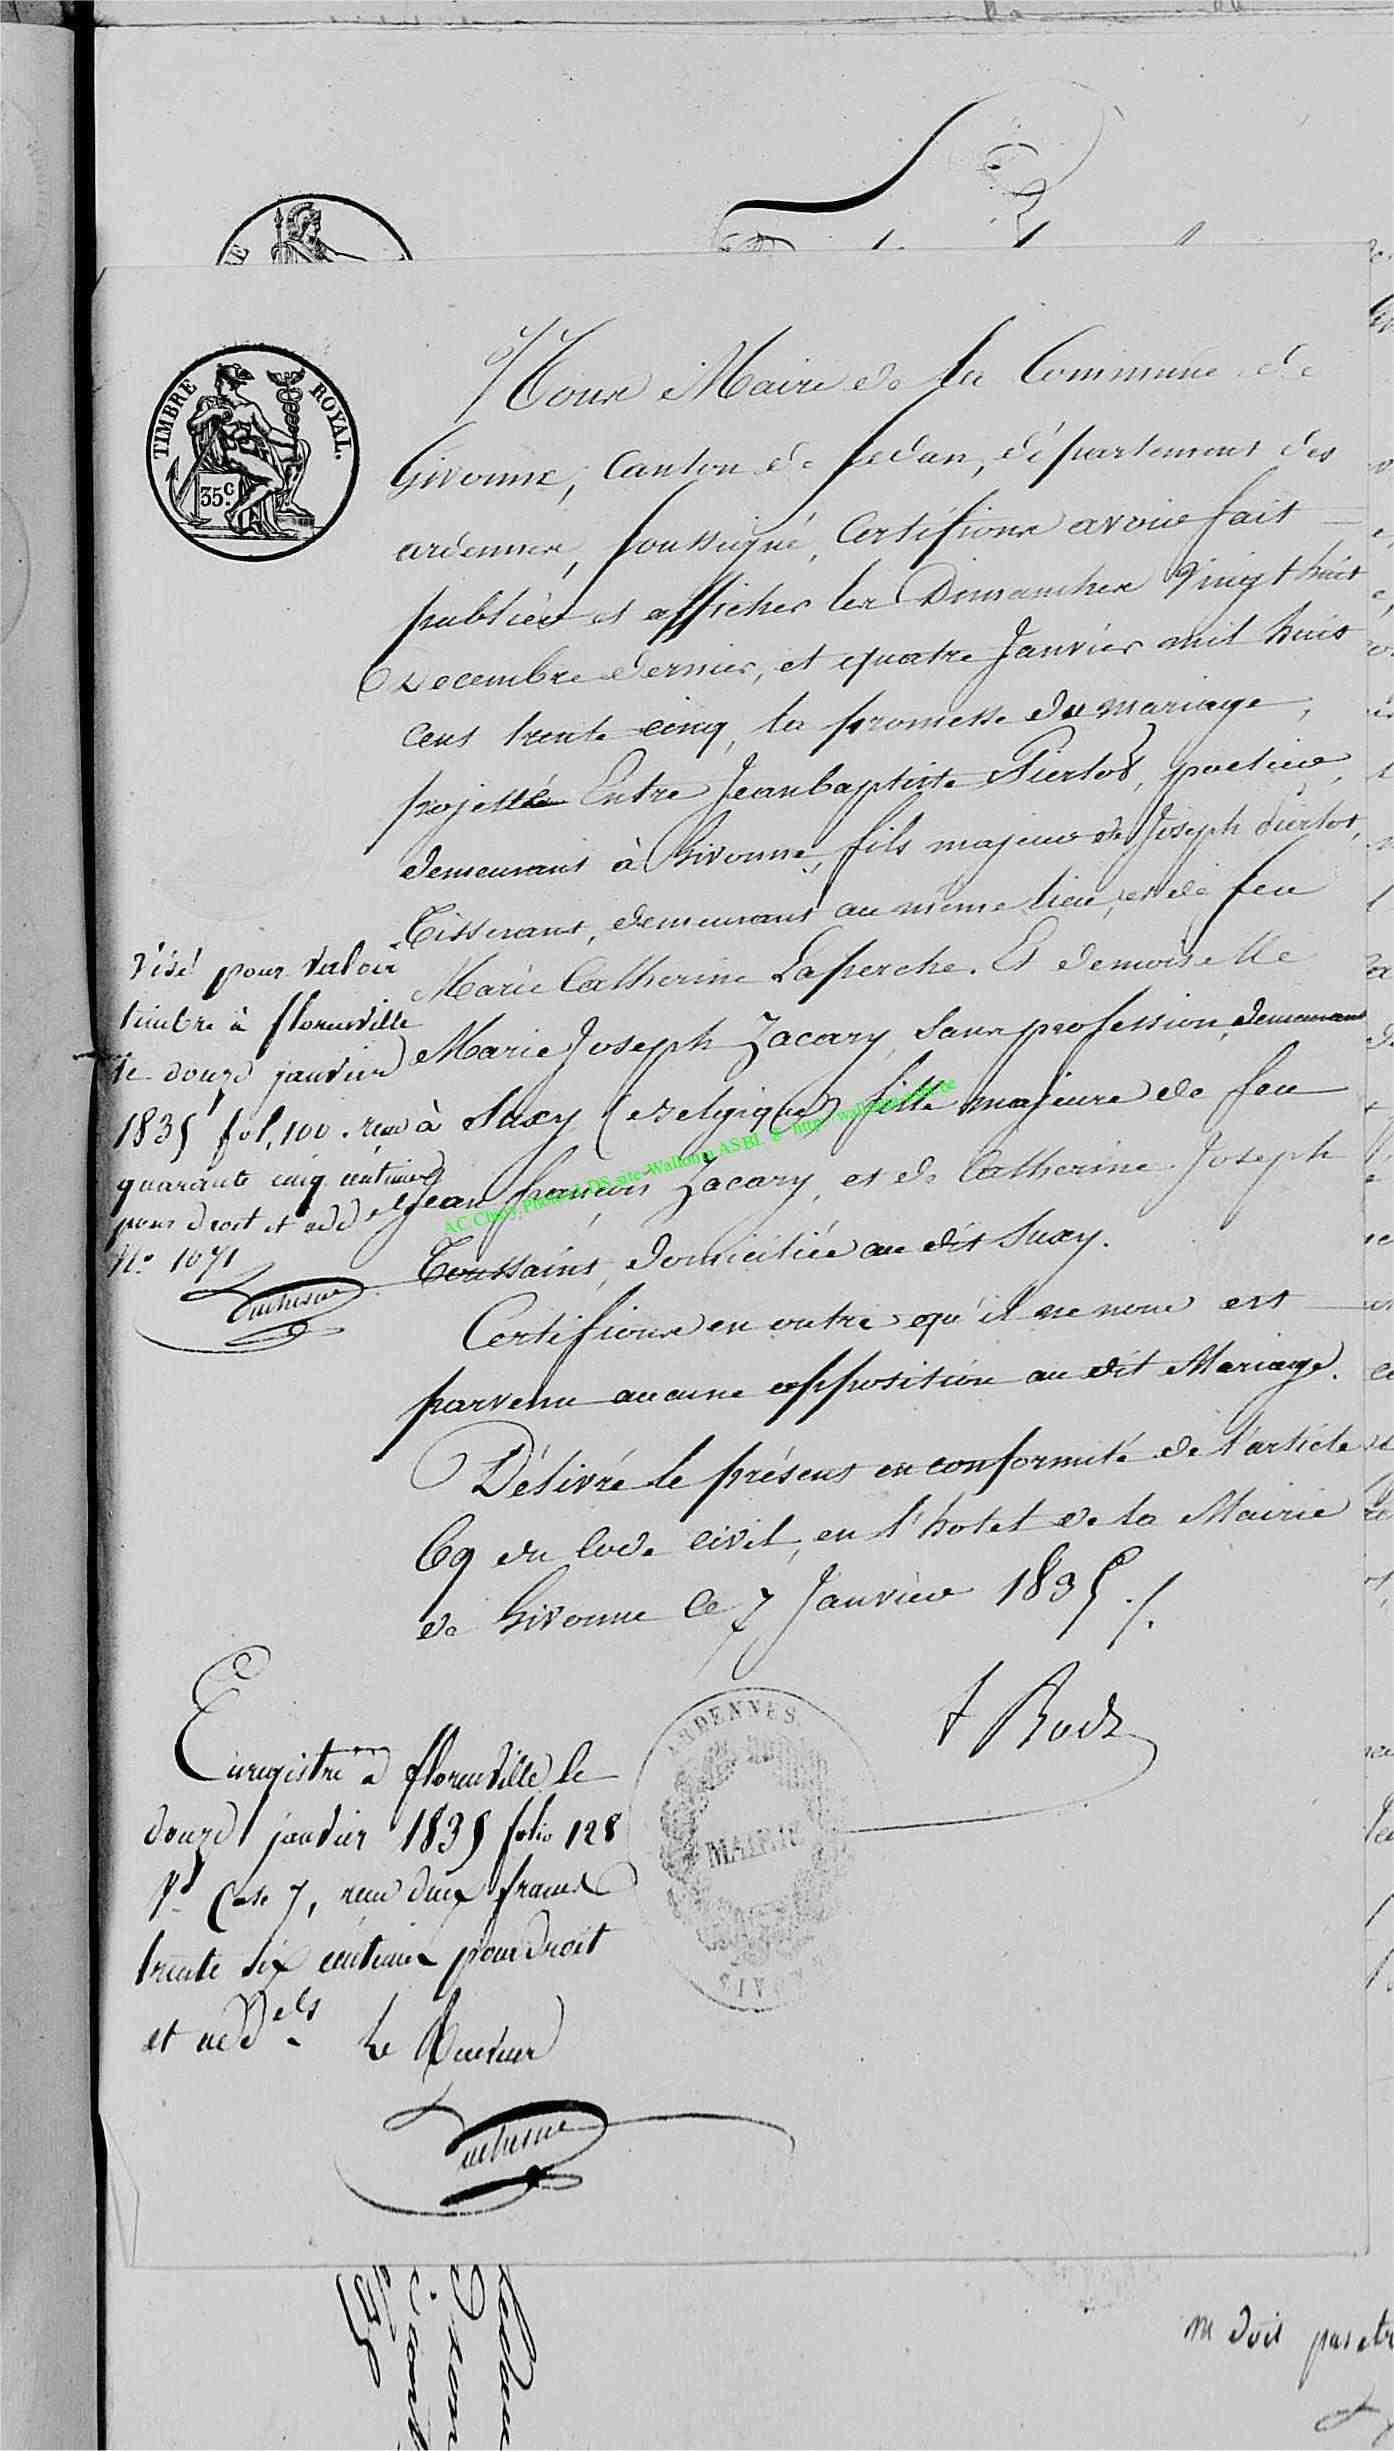 TIMBRE ROYAL.
35c
Nous Maire de la Commune de
Givonne, Canton de Sedan, département des
ardennes, soussigné, Certifions avoir fait
publier et afficher les Dimanches Vingt huit
Decembre dernier, et quatre Janvier mil huit
cent trente cinq, la promesse du mariage,
projetté Entre Jean baptiste Pierlot, postier,
demeurant à Givonne, fils majeur de Joseph Pierlot,
Tisserant, demeurant au même lieu, et de feu
Marie Catherine Laperche. Et demoiselle
Marie Joseph Jacary, Sans profession, demeurant
à Suxy (Belgique) fille majeure de feu
Jean françois Jacary, et de Catherine Joseph
Toussaint, domiciliée au dit Suxy.
Certifions en outre qu'il ne nous est
parvenu aucune opposition au dit Mariage.
Délivré le présent en conformité de l'article
69 du Code civil, en l'hotel de la Mairie
de Givonne le 7 Janvier 1835 ./.
Visé pour valoir
timbre à florenville
le douze janvier
1835 fol. 100. reçu
quarante cinq centimes
pour droit et add els
No. 1071
Duchesne
AC Chiny Photos LDS site Wallonia ASBL & http://wallonia-asbl.be
Enregistré à florenville le
douze janvier 1835 folio 128
Vo Case 7, reçu deux francs
trente six centimes pour droit
et add els Le Receveur
Duchesne
ARDENNES
MAIRIE
GIVONNE
ne doit pas etr